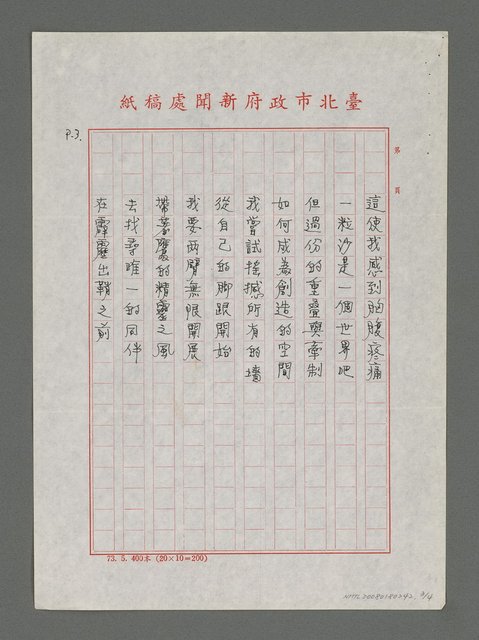 臺北市政府新聞處稿紙
P.3.
第 頁
這使我感到胸腹疼痛
一粒沙是一個世界吧
但過份的重疊與牽制
如何成為創造的空間
我嘗試搖撼所有的墻
從自己的腳跟開始
我要兩臂無限開展
帶著鷹的精靈之風
去找尋唯一的同伴
在霹靂出鞘之前
73. 5. 400本 (20×10=200)
NMTL20080180242, 3/4